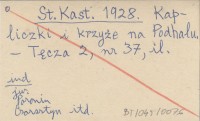 St. Kast. 1928. Kap-
liczki i krzyże na Podhalu.
– Tęcza 2, nr 37, il.
ind
jw.
Poronin
itd.